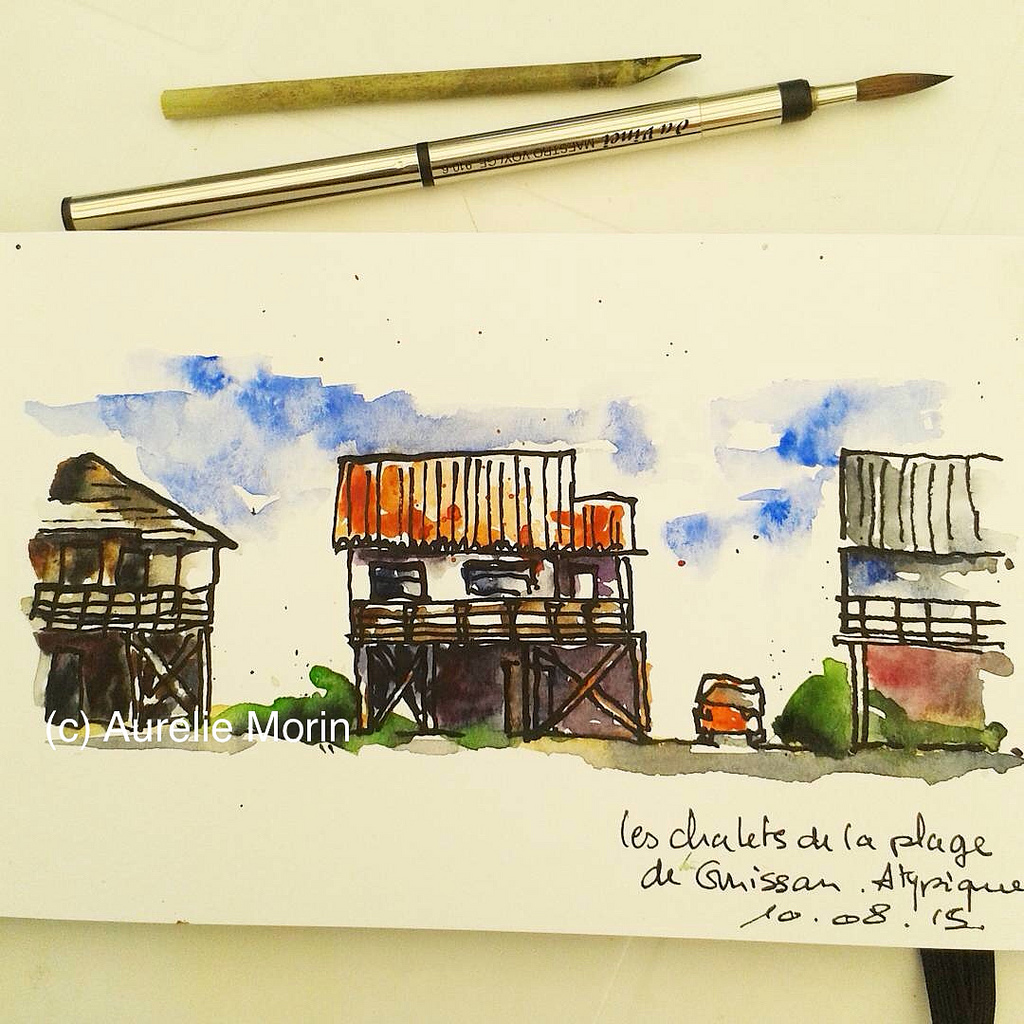 da Vinci MAESTRO VOYAGE 910-6
(c) Aurélie Morin
les chalets de la plage
de Gruissan. Atypique
10.08.15.